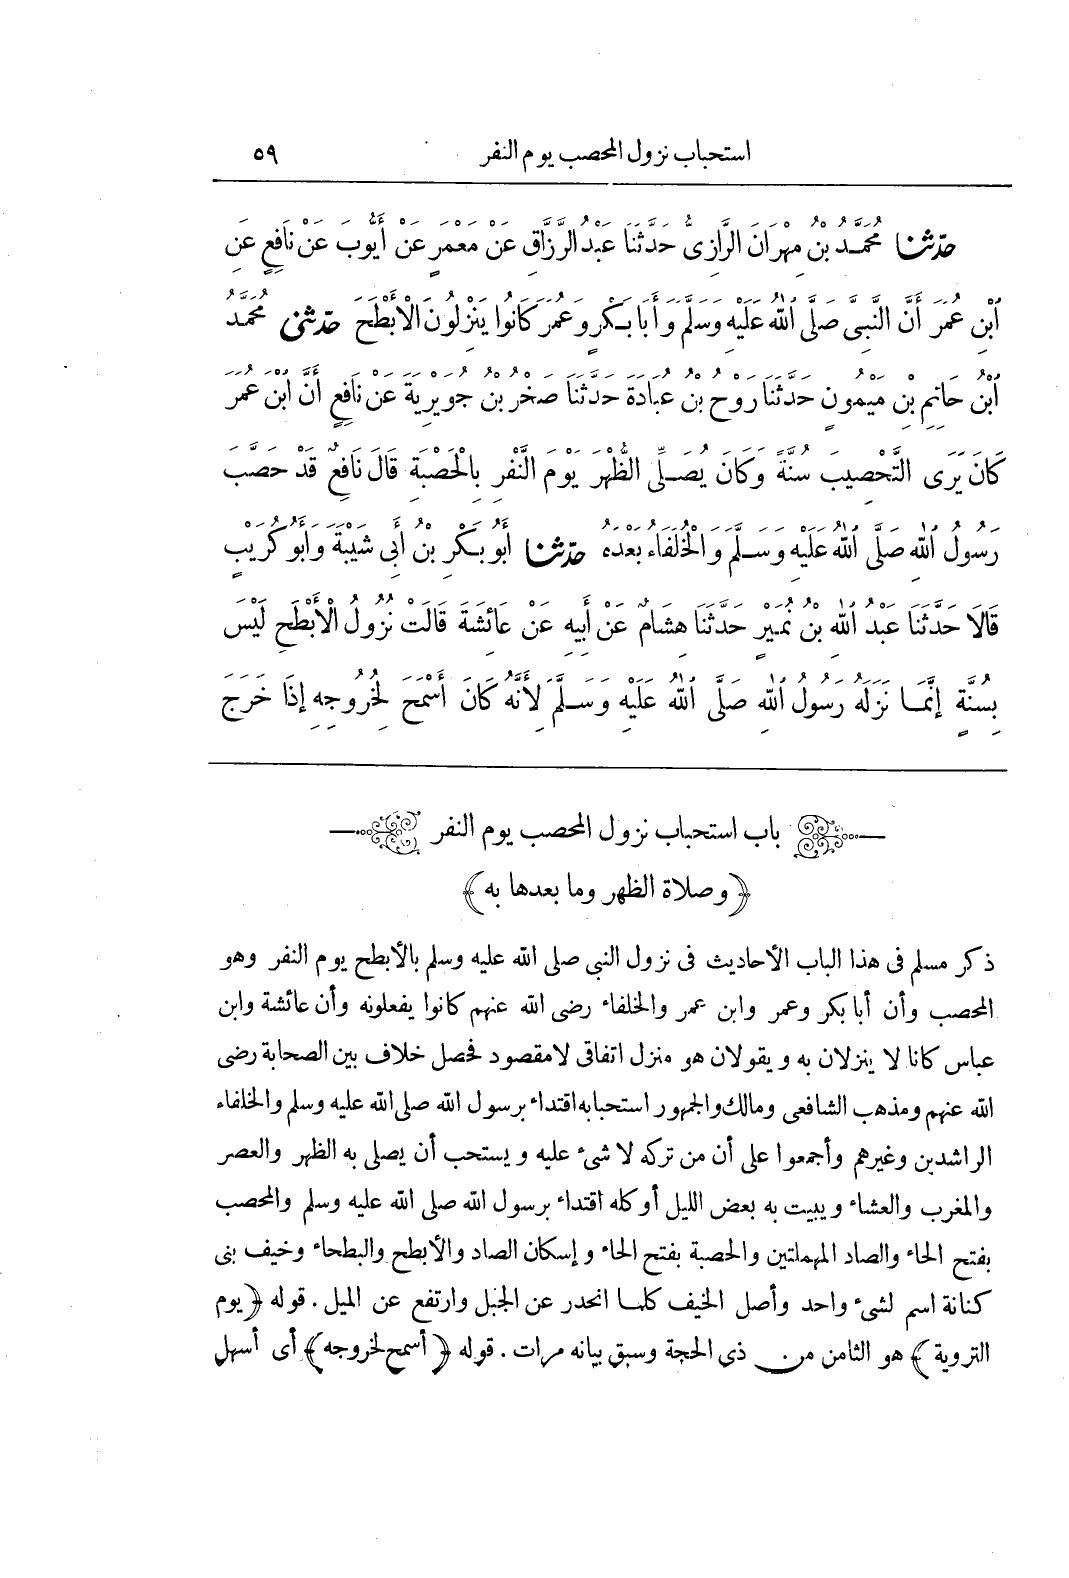 استحباب نزول المحصب يوم النفر ٥٩
حدّثنا مُحَمَّدُ بْنُ مِهْرَانَ الرَّازِىُّ حَدَّثَنَا عَبْدُ الرَّزَّاقِ عَنْ مَعْمَرٍ عَنْ أَيُّوبَ عَنْ نَافِعٍ عَنِ
ابْنِ عُمَرَ أَنَّ النَّبِىَّ صَلَّى اللهُ عَلَيْهِ وَسَلَّمَ وَأَبَا بَكْرٍ وَعُمَرَ كَانُوا يَنْزِلُونَ الْأَبْطَحَ حدّثنى مُحَمَّدُ
ابْنُ حَاتِمِ بْنِ مَيْمُونٍ حَدَّثَنَا رَوْحُ بْنُ عُبَادَةَ حَدَّثَنَا صَخْرُ بْنُ جُوَيْرِيَةَ عَنْ نَافِعٍ أَنَّ ابْنَ عُمَرَ
كَانَ يَرَى التَّحْصِيبَ سُنَّةً وَكَانَ يُصَلِّى الظُّهْرَ يَوْمَ النَّفْرِ بِالْحَصْبَةِ قَالَ نَافِعٌ قَدْ حَصَّبَ
رَسُولُ اللهِ صَلَّى اللهُ عَلَيْهِ وَسَلَّمَ وَالْخُلَفَاءُ بَعْدَهُ حدّثنا أَبُو بَكْرِ بْنُ أَبِى شَيْبَةَ وَأَبُو كُرَيْبٍ
قَالَا حَدَّثَنَا عَبْدُ اللهِ بْنُ نُمَيْرٍ حَدَّثَنَا هِشَامٌ عَنْ أَبِيهِ عَنْ عَائِشَةَ قَالَتْ نُزُولُ الْأَبْطَحِ لَيْسَ
بِسُنَّةٍ إِنَّمَا نَزَلَهُ رَسُولُ اللهِ صَلَّى اللهُ عَلَيْهِ وَسَلَّمَ لِأَنَّهُ كَانَ أَسْمَحَ لِخُرُوجِهِ إِذَا خَرَجَ
باب استحباب نزول المحصب يوم النفر
﴿وصلاة الظهر وما بعدها به﴾
ذكر مسلم فى هذا الباب الأحاديث فى نزول النبى صلى الله عليه وسلم بالأبطح يوم النفر وهو
المحصب وأن أبا بكر وعمر وابن عمر والخلفاء رضى الله عنهم كانوا يفعلونه وأن عائشة وابن
عباس كانا لا ينزلان به ويقولان هو منزل اتفاقى لا مقصود فحصل خلاف بين الصحابة رضى
الله عنهم ومذهب الشافعى ومالك والجمهور استحبابه اقتداء برسول الله صلى الله عليه وسلم والخلفاء
الراشدين وغيرهم وأجمعوا على أن من تركه لا شىء عليه ويستحب أن يصلى به الظهر والعصر
والمغرب والعشاء ويبيت به بعض الليل أو كله اقتداء برسول الله صلى الله عليه وسلم والمحصب
بفتح الحاء والصاد المهملتين والحصبة بفتح الحاء وإسكان الصاد والأبطح والبطحاء وخيف بنى
كنانة اسم لشىء واحد وأصل الخيف كلما انحدر عن الجبل وارتفع عن الميل. قوله ﴿يوم
التروية﴾ هو الثامن من ذى الحجة وسبق بيانه مرات. قوله ﴿أسمح لخروجه﴾ أى أسهل